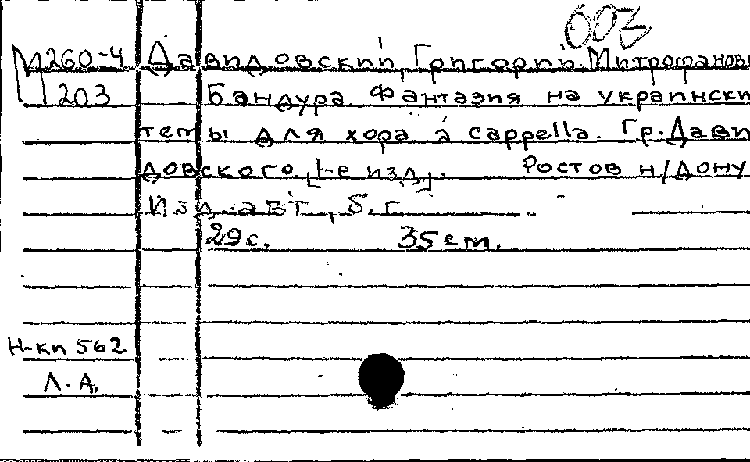 003
М260-4 Давидовский, Григорий Митрофанови
203 Бандура. Фантазия на украински
темы для хора a cappella. Гр. Дави
довского. [1-е изд]. Ростов н/Дону
Изд. авт, б. г.
29 с. 35 см.
Н-кп 562
Л. А.